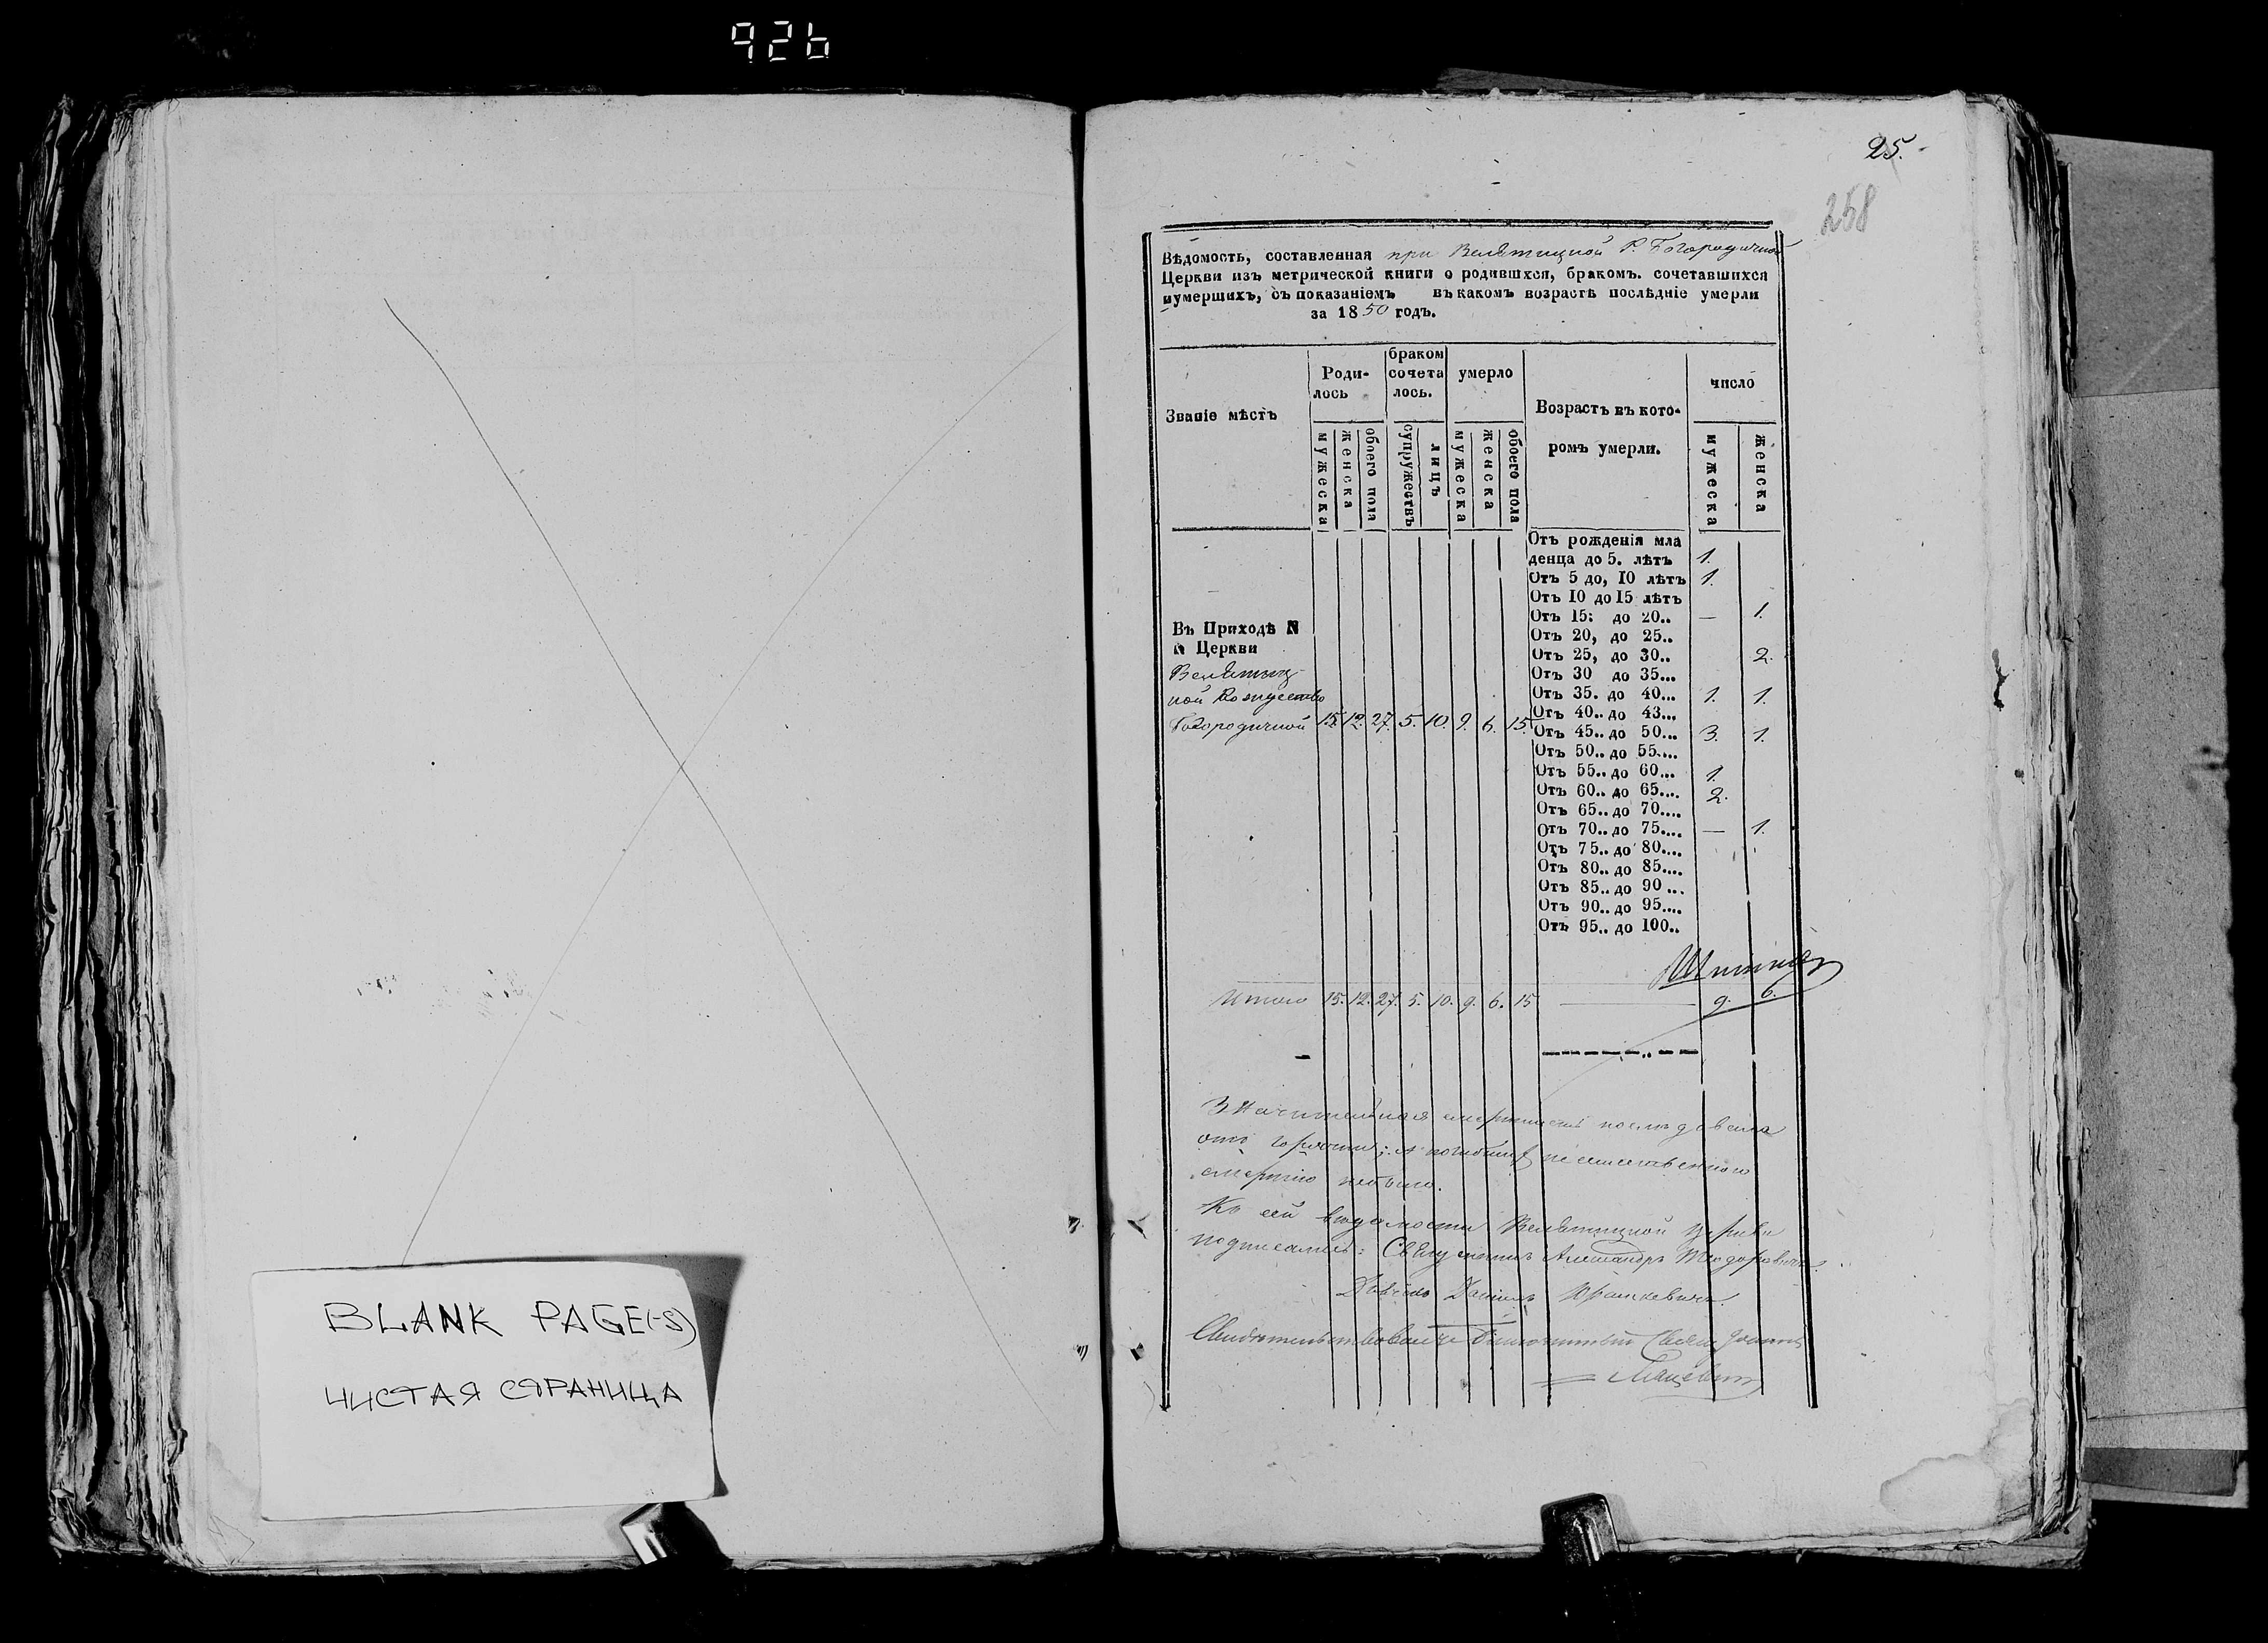 926
25.
258
Вѣдомость, составленная при Велѣтицкой Р. Богородичной
Церкви изъ метрической книги о родившхся, бракомъ. сочетавшихся
иумершихъ, съ показаніемъ въ какомъ возрастѣ послѣдніе умерли
за 1850 годъ.
Званіе мѣстъ
Роди-
лось
браком
сочета
лось.
умерло
Возрастъ въ кото-
ромъ умерли.
число
мужеска
женска
обоего пола
супружествъ
лицъ
мужеска
женска
обоего пола
мужеска
женска
Отъ рожденія мла
денца до 5. лѣтъ 1.
Отъ 5 до, 10 лѣтъ 1.
Отъ 10 до 15 лѣтъ
Отъ 15: до 20.. — 1.
Отъ 20, до 25..
Отъ 25, до 30.. 2.
Отъ 30 до 35...
Отъ 35. до 40... 1. 1.
Отъ 40.. до 43...
Отъ 45.. до 50... 3. 1.
Отъ 50.. до 55....
Отъ 55.. до 60... 1.
Отъ 60.. до 65.... 2.
Отъ 65.. до 70....
Отъ 70.. до 75.... — 1.
Отъ 75.. до 80....
Отъ 80.. до 85....
Отъ 85.. до 90...
Отъ 90.. до 95....
Отъ 95.. до 100..
Въ Приходѣ N
N Церкви
Велѣтиц-
кой Рождество
Богородичной 15. 12. 27. 5. 10. 9. 6. 15.
Итого 15. 12. 27. 5. 10. 9. 6. 15 — 9. 6.
Значительная смертность последовала
отъ горячки; а погибших неестественною
смертію небыло.
Къ сей ведомости Велѣтицкой церкви
подписались: Священникъ Александръ Теодоровичъ.
Дьячекъ Юрашкевичъ.
Свидѣтельствовалъ Благочинный Свящ. Іоаннъ
BLANK PAGE(-S)
ЧИСТАЯ СТРАНИЦА